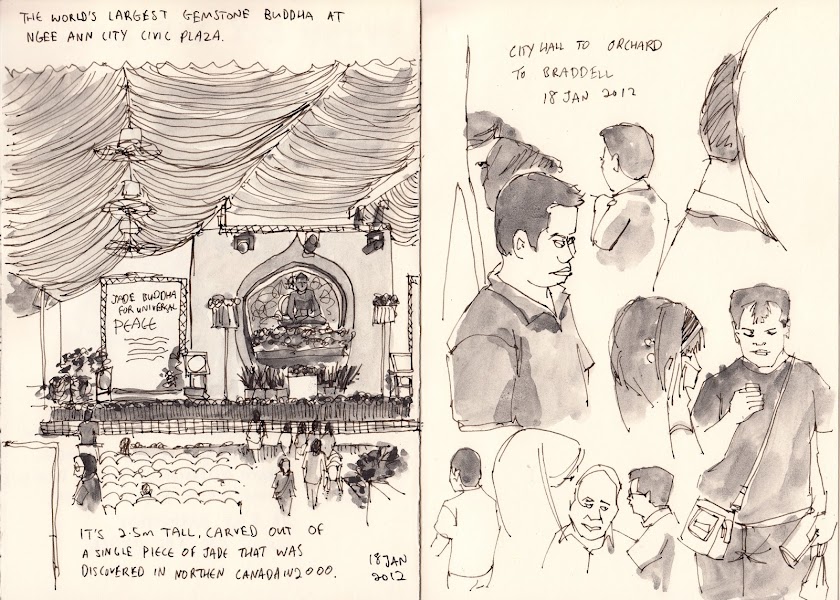 THE WORLD'S LARGEST GEMSTONE BUDDHA AT
NGEE ANN CITY CIVIC PLAZA.
JADE BUDDHA
FOR UNIVERSAL
PEACE
IT'S 2.5M TALL, CARVED OUT OF
A SINGLE PIECE OF JADE THAT WAS
DISCOVERED IN NORTHEN CANADA IN 2000.
18 JAN
2012
CITY HALL TO ORCHARD
TO BRADDELL
18 JAN 2012